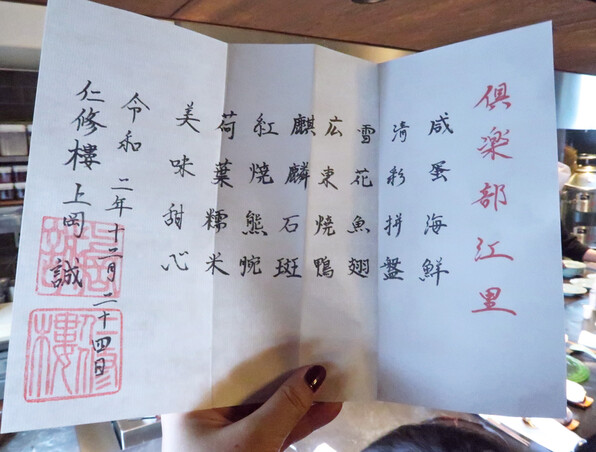 俱楽部江里
咸蛋海鮮
清彩拼盤
雪花魚翅
広東焼鴨
麒麟石斑
紅焼熊腕
荷葉糯米
美味甜心
令和二年十二月二十四日
仁修樓上岡誠
仁修樓